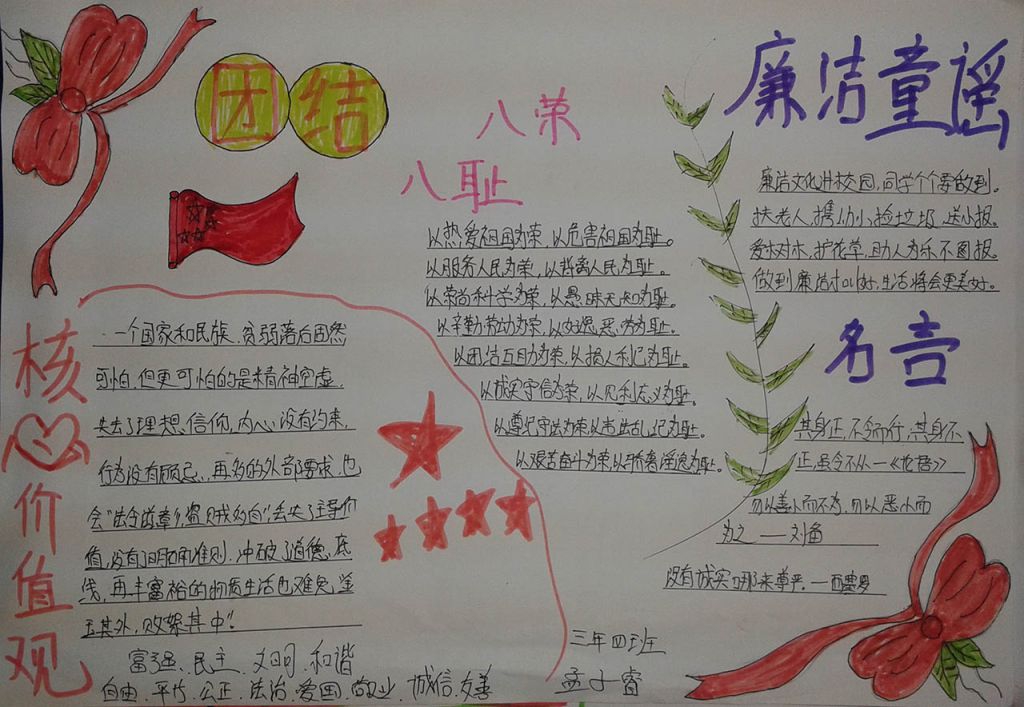 团结
八荣
八耻
以热爱祖国为荣，以危害祖国为耻。
以服务人民为荣，以背离人民为耻。
以崇尚科学为荣，以愚昧无知为耻。
以辛勤劳动为荣，以好逸恶劳为耻。
以团结互助为荣，以损人利己为耻。
以诚实守信为荣，以见利忘义为耻。
以遵纪守法为荣以违法乱纪为耻。
以艰苦奋斗为荣，以骄奢淫逸为耻。
廉洁童谣
廉洁文化进校园，同学个个要做到。
扶老人，携幼小，捡垃圾，送小报。
爱树木，护花学，助人为乐不图报。
做到廉洁，生活将会更美好。
名言
其身正，不令而行，其身不
正，虽令不从—《论语》
勿以善小而不为，勿以恶小而
为之——刘备
没有诚实哪来尊严。—西塞罗
核心价值观
一个国家和民族，贫弱落后固然
可怕，但更可怕的是精神空虚，
失去了理想、信仰，内心没有约束，
行为没有顾忌，再多的外部要求，也
会"法令滋彰，盗贼多有"；丢失了主导价
值，没有了明确准则，冲破了道德底
线，再丰富裕的物质生活也难免"金
玉其外，败絮其中"！
富强、民主、文明、和谐
自由、平等、公正、法治、爱国、敬业、诚信、友善
三年四班
孟子睿